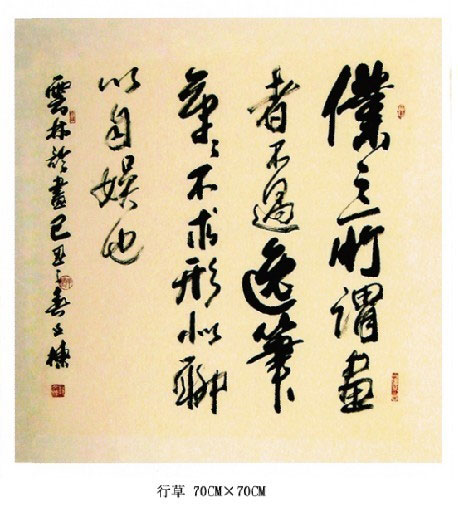 僕之所謂畫
者不過逸筆
草々不求形似聊
以自娛也
雲林論畫己丑之春
行草 70CM×70CM